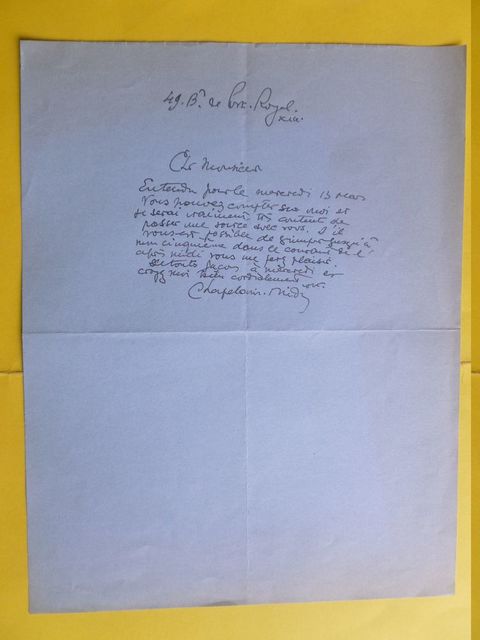 49. Bd de Port. Royal.
XIII.
Cher Monsieur
Entendu pour le mercredi 13 mars
Vous pouvez compter sur moi et
je serai vraiment très content de
passer une soirée avec vous. S'il
vous est possible de grimper jusqu'à
mon cinquième dans le courant de l'
après midi vous me ferez plaisir.
De toute façon à mercredi et
croyez moi bien cordialement vôtre.
Chapelain-Midy